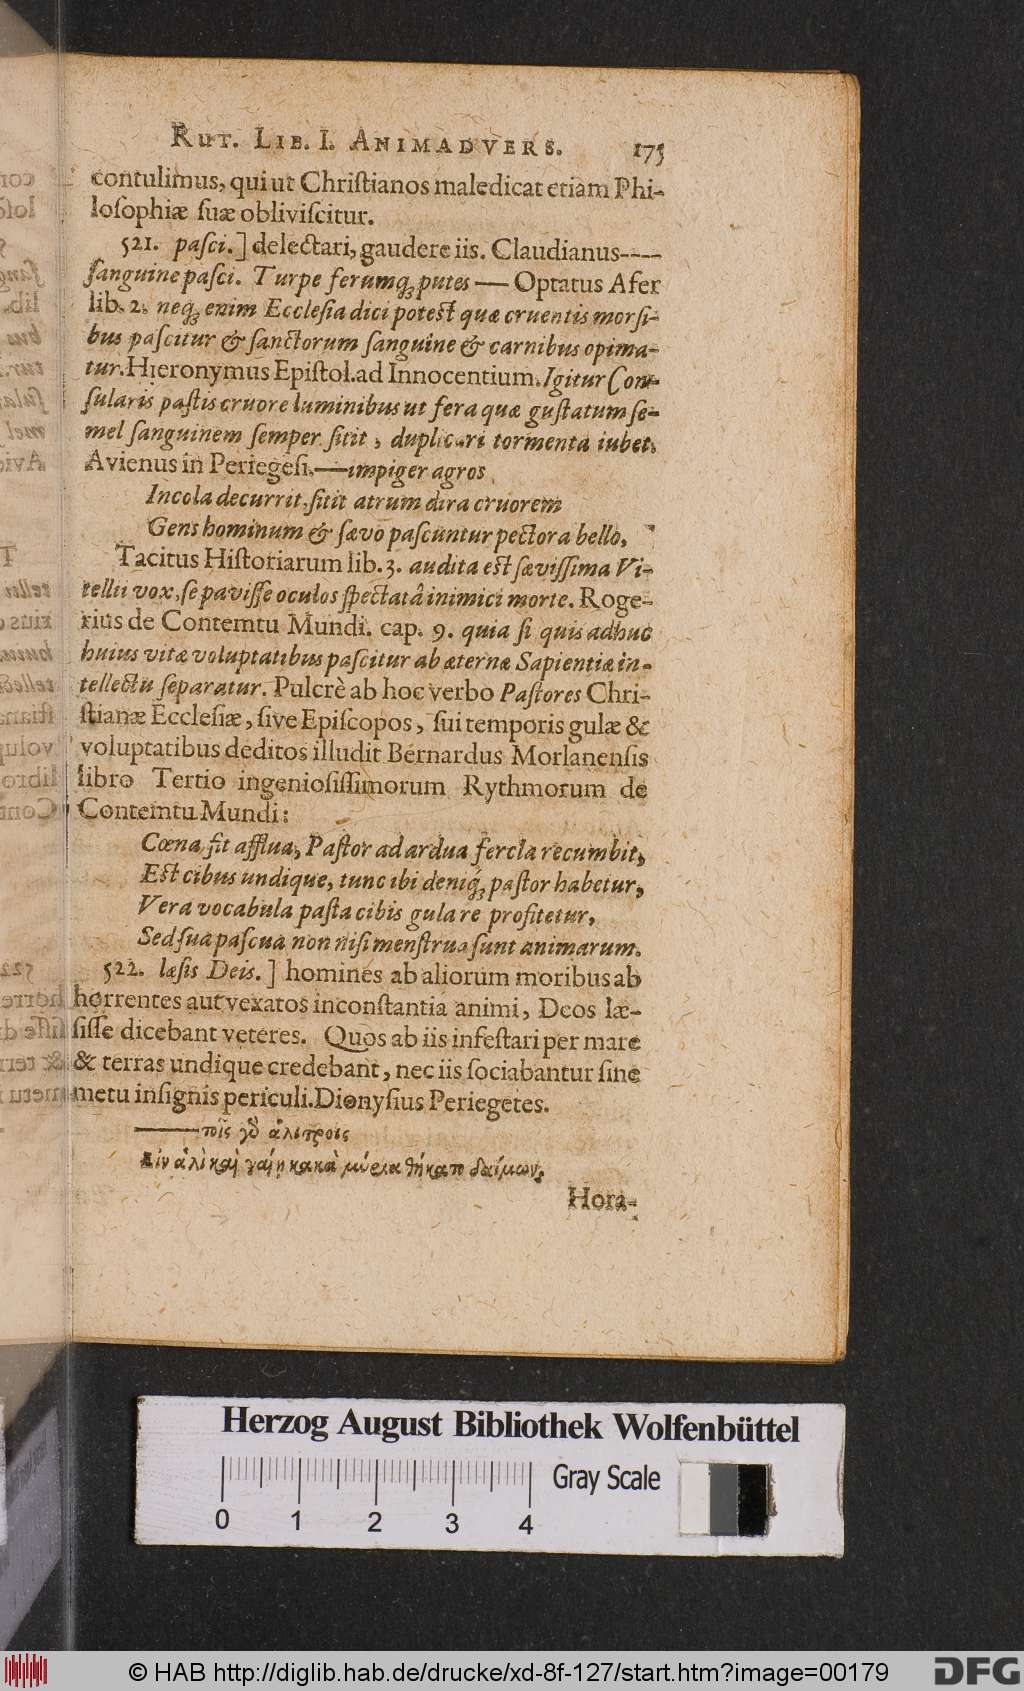 RUT. LIB. I. ANIMADVERS. 175
contulimus, qui ut Chriſtianos maledicat etiam Phi-
loſophiæ ſuæ obliviſcitur.
521. paſci.] delectari, gaudere iis. Claudianus----
ſanguine paſci. Turpe ferumq́; putes — Optatus Afer
lib. 2. neq́; enim Eccleſia dici poteſt quæ cruentis morſi-
bus paſcitur & ſanctorum ſanguine & carnibus opima-
tur. Hieronymus Epiſtol. ad Innocentium. Igitur Con-
ſularis paſtis cruore luminibus ut fera quæ guſtatum ſe-
mel ſanguinem ſemper ſitit, duplicari tormenta iubet.
Avienus in Periegeſi. — impiger agros
Incola decurrit, ſitit atrum dira cruorem
Gens hominum & ſævo paſcuntur pectora bello,
Tacitus Hiſtoriarum lib. 3. audita eſt ſæviſſima Vi-
tellii vox, ſe paviſſe oculos ſpectatâ inimici morte. Roge-
rius de Contemtu Mundi. cap. 9. quia ſi quis adhuc
huius vitæ voluptatibus paſcitur ab æternæ Sapientiæ in-
tellectu ſeparatur. Pulcrè ab hoc verbo Paſtores Chri-
ſtianæ Eccleſiæ, ſive Epiſcopos, ſui temporis gulæ &
voluptatibus deditos illudit Bernardus Morlanenſis
libro Tertio ingenioſiſſimorum Rythmorum de
Contemtu Mundi:
Cœna fit afflua, Paſtor ad ardua fercla recumbit,
Eſt cibus undique, tunc ibi deniq́; paſtor habetur,
Vera vocabula paſta cibis gula re profitetur,
Sed ſua paſcua non niſi menſtrua ſunt animarum.
522. læſis Deis.] homines ab aliorum moribus ab
horrentes aut vexatos inconſtantia animi, Deos læ-
ſiſſe dicebant veteres. Quos ab iis infeſtari per mare
& terras undique credebant, nec iis ſociabantur ſine
metu inſignis periculi. Dionyſius Periegetes.
—— τοῖς γδ̀ ἀλιτροῖς
Εἰν ἁλὶ καὶ γαίῃ κακὰ μύρια θήκατο δαίμων.
Hora-
Herzog August Bibliothek Wolfenbüttel
Gray Scale
0 1 2 3 4
© HAB http://diglib.hab.de/drucke/xd-8f-127/start.htm?image=00179
DFG